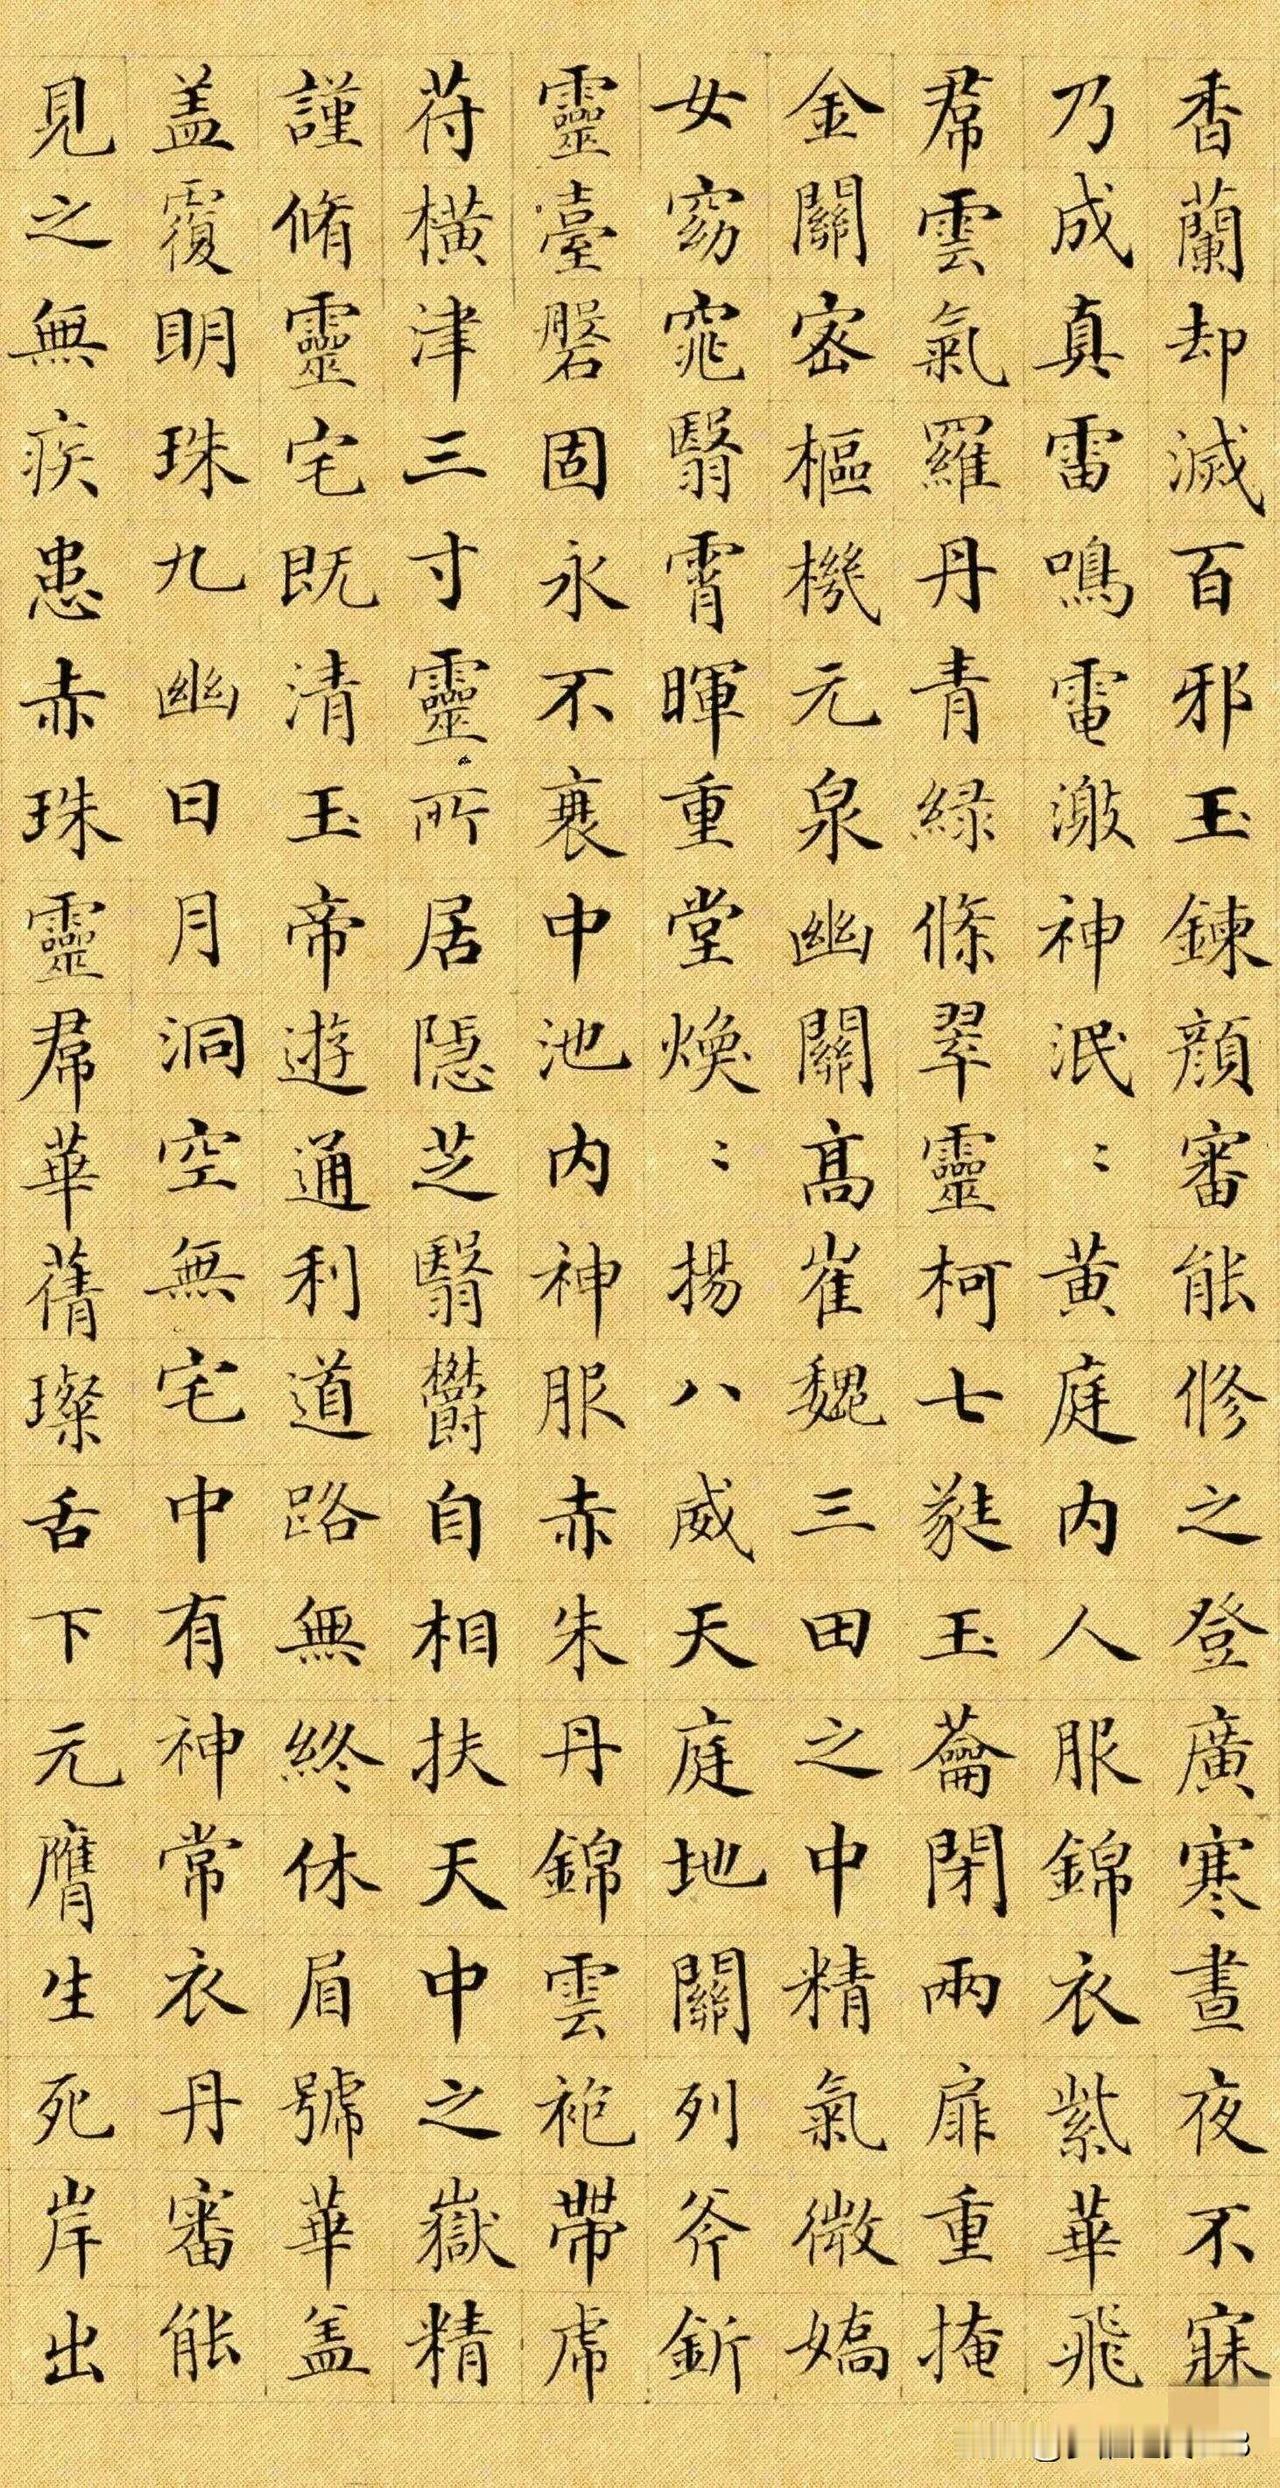 香蘭却滅百邪玉鍊顔審能修之登廣寒晝夜不寐
乃成真雷鳴電激神泯〻黄庭内人服錦衣紫華飛
帬雲氣羅丹青緑條翠靈柯七蕤玉蘥閉兩扉重掩
金關密樞機元泉幽關髙崔巍三田之中精氣微嬌
女窈窕翳霄暉重堂煥〻揚八威天庭地關列斧釿
靈臺磐固永不衰中池内神服赤朱丹錦雲袍帶虎
苻横津三寸靈所居隱芝翳欝自相扶天中之嶽精
謹脩靈宅既清玉帝遊通利道路無終休眉號華盖
盖覆明珠九幽日月洞空無宅中有神常衣丹審能
見之無疾患赤珠靈帬華蒨璨舌下元膺生死岸出